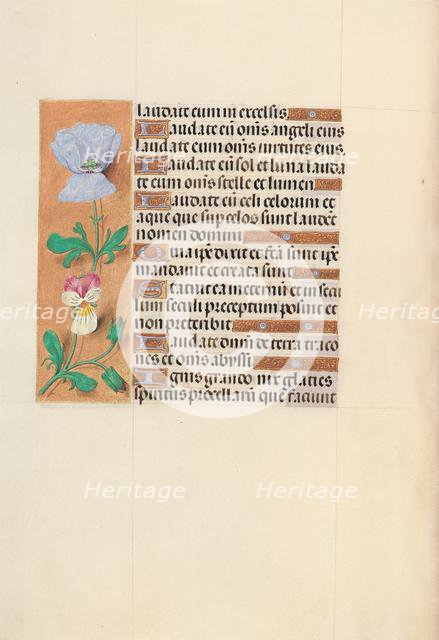 laudate eum in excelsis
Laudate eū om̄s angeli eius
laudate eum om̄s virtutes eius.
Laudate eū sol et luna lauda
te eum om̄s stelle et lumen
Laudate eū celi celorum et
aque que sup celos sunt laudēt
nomen domini
Quia ip̄e dixit et facta sunt ip̄e
mandauit et creata sunt
Statuit ea in eternū et in secu
lum seculi preceptum posuit et
non preteribit
Laudate dn̄m de terra draco
nes et om̄s abyssi
Ignis grando nix glacies
spiritus procellarū que faciunt
Heritage
Heritage
Heritage
Heritage
Heritage
Heritage